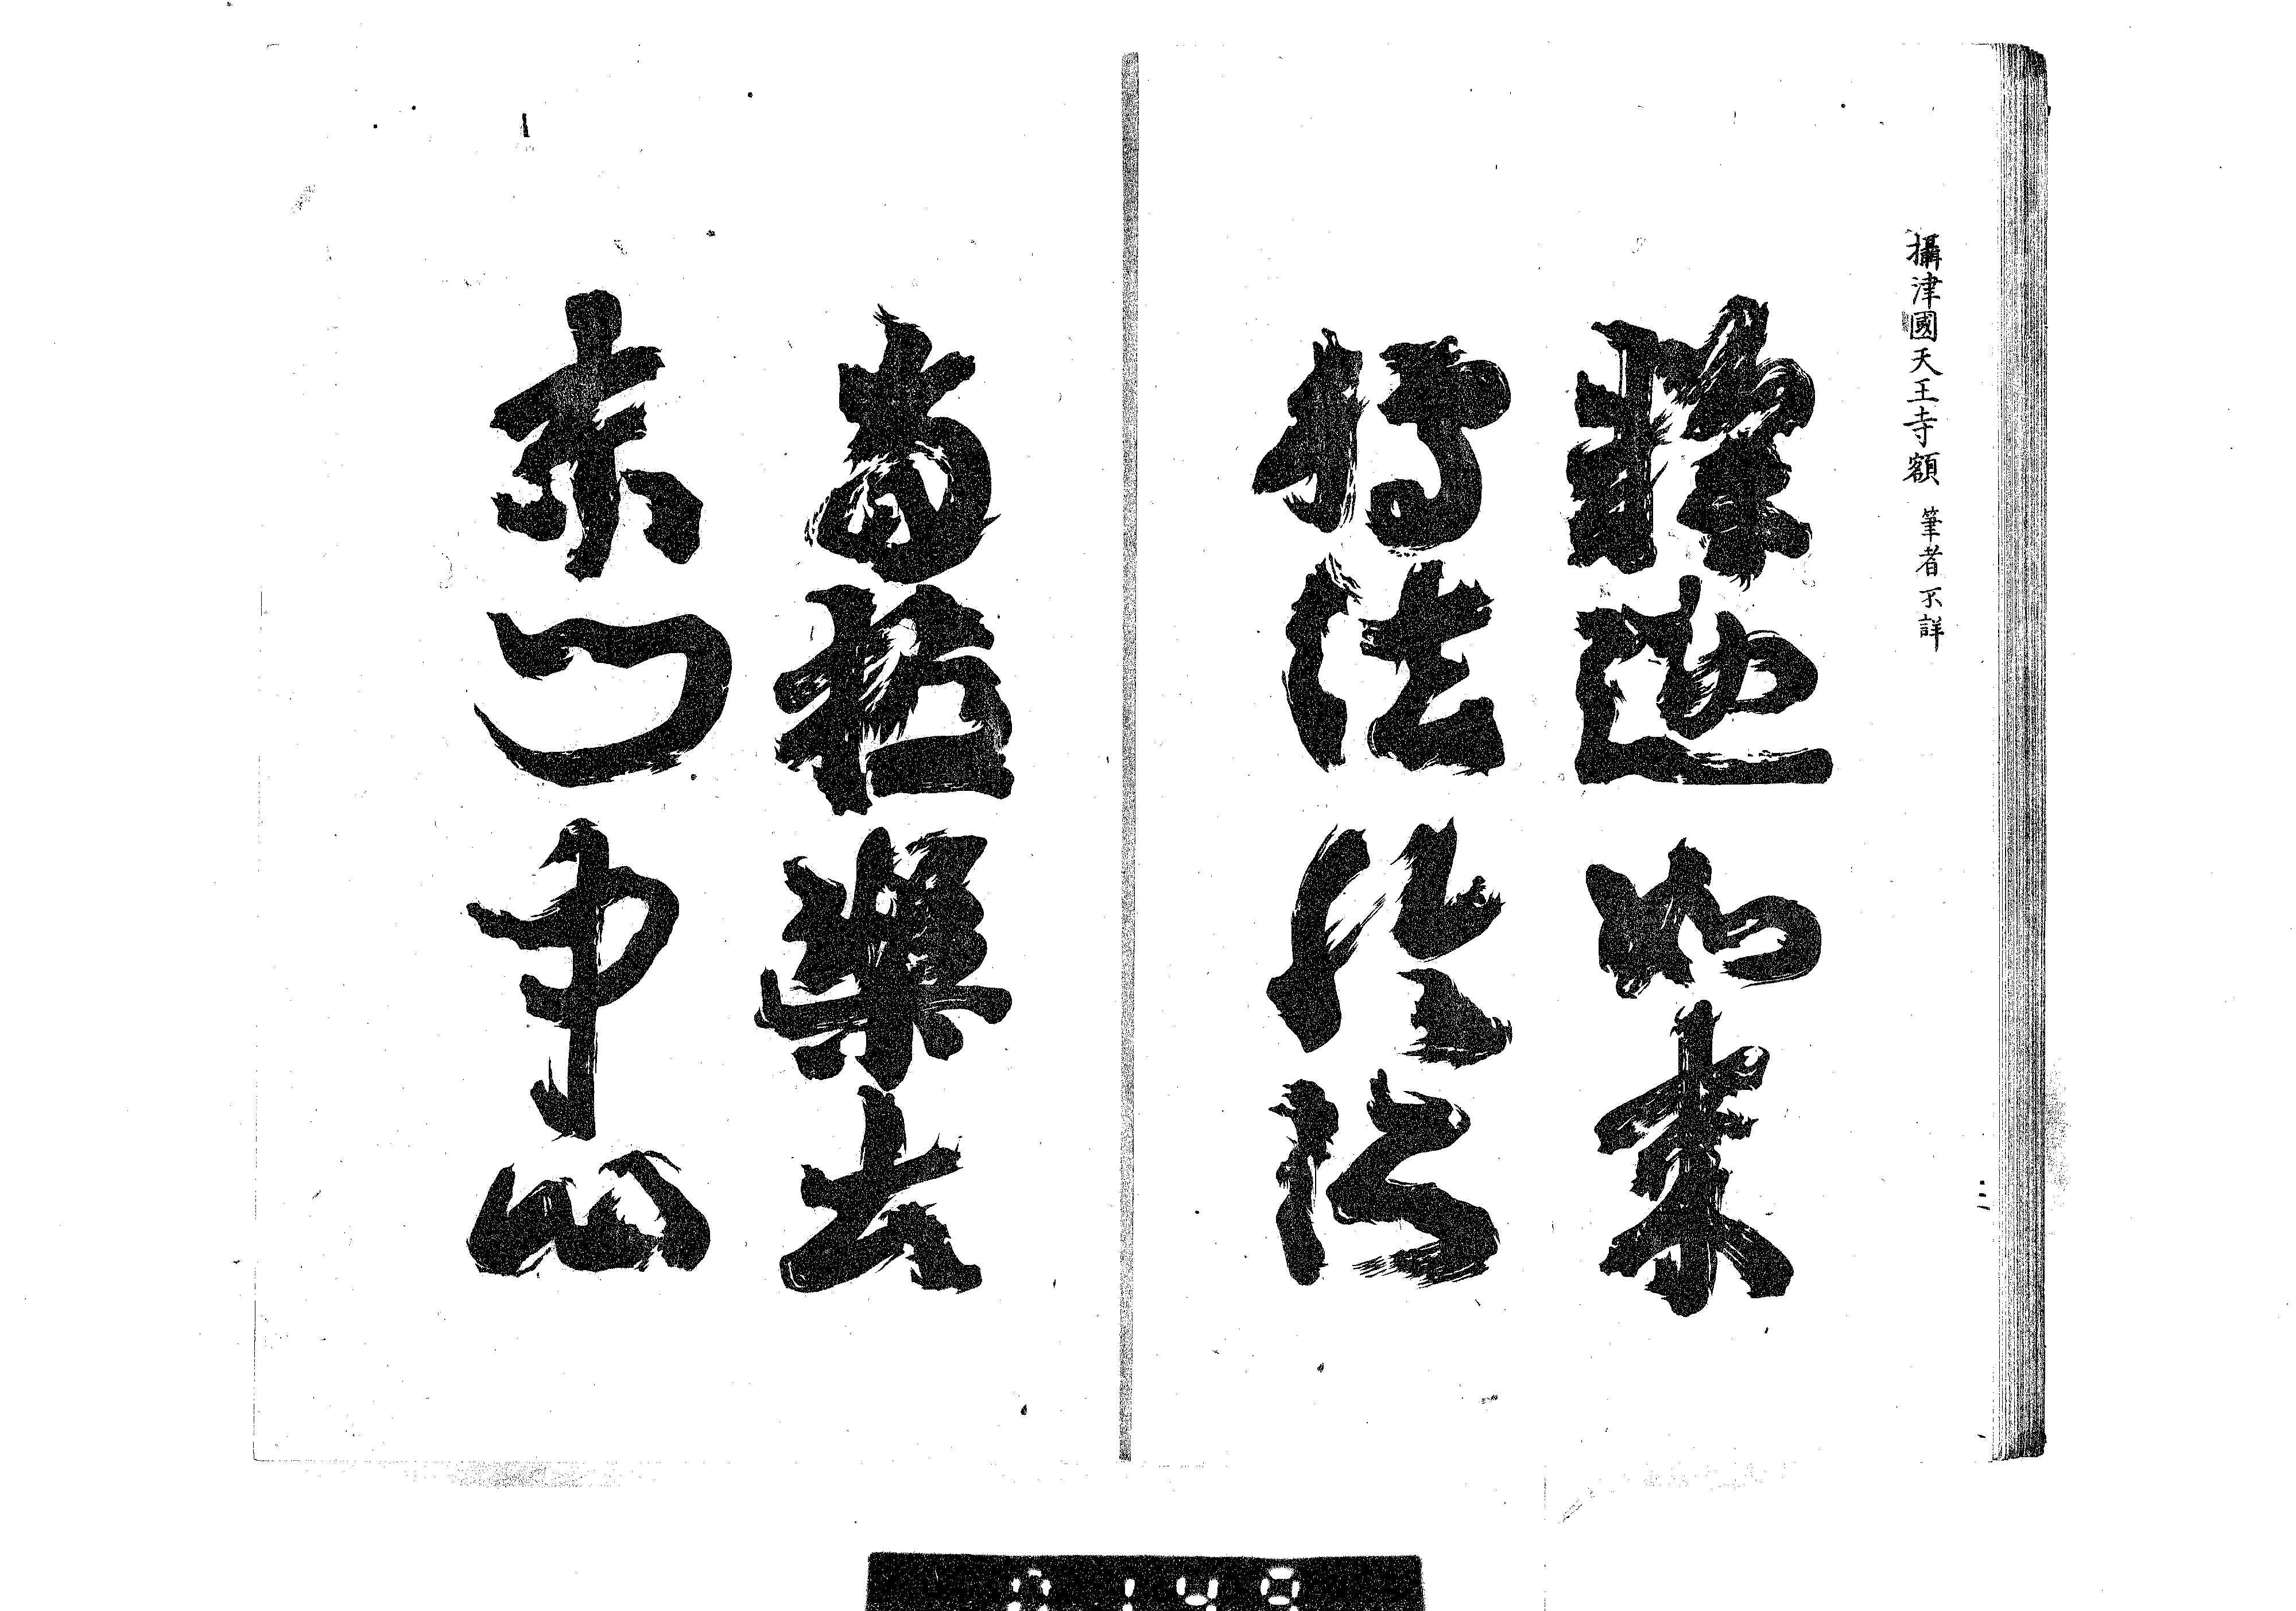 攝津國天王寺額 筆者不詳
釋迦如来
轉法輪所
當極樂土
東門中心
0149